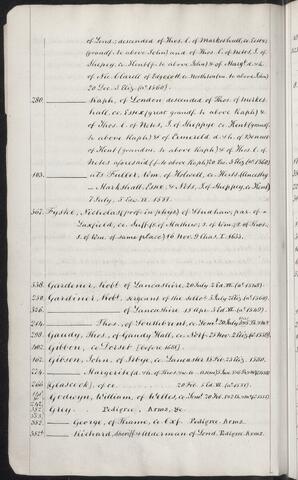 of Lond; descended of Thos. f. of Markeshall, co. Essex
(grandf. to above John) and of Thos. f. of Notes, I. of
Shepey, co. Kent (f. to above John) & of Margt. d. & h.
of Nic. Clarell of Edgecott, co. Northton. to above John)
20 Dec. 3 Eliz. (Ao 1560).
280. ——— Raph, of London descended of Thos. of Markes
hall, co. Essex (great grandf. to above Raph) &
of Thos. f. of Notes, I. of Sheppye co. Kent (grandf.
to above Raph) & of d. & h. of Bennett
of Kent (grandm. to above Raph) & of Thos. f. of
Notes aforesaid (f. to above Raph) 20 Dec. 3 Eliz (Ao 1560)
103. ——— als Fuller, Wm. of Holwell, co. Herts. Ancestry
— Markshall, Essex, & Nots, I. of Sheppy, co. Kent)
7 July, 5 Edw. VI. 1551.
367. Fyske, Nicholas (prof. in physic) of Studhaw, par. of
Laxfield, co. Suff. (s. of Mathew; s. of Wm.; s. of Thos.;
s. of Wm. of same place) 16 Nov. 9 Chas. I. 1633.
338. Gardener, Robt. of Lancashire, 20 July 2 Ed. VI. (Ao 1548).
250. Gardiner, Robt., sergeant of the seller 3 July 2 Eliz (Ao 1560).
326. ——— of Lancashire. 18 Apr. 3 Ed. VI. (Ao 1549).
214. ——— Thos., of Southbrent, co. Som.
298. Gaudy, Thos., of Gaudy Hall, co. Norf. 20 Nov. 2 Eliz. (Ao 1559)
402. Gibbon, co. Dorset (before 1681).
102. Gibson, John, of Ribye, co. Lancaster 18 Feb. 23 Eliz. 1580.
274. ——— Margerie
266. (Glascock) of co. 20 Feb. 5 Ed. VI. (Ao 1551).
Godwyn, William, of Welles, co. Som.
382. Grey. Pedigree, Arms, &c.
382. ——— George, of Thame, co. Oxf. Pedigree. Arms.
382b. ——— Richard, Sheriff & Alderman of Lond. Pedigree. Arms.